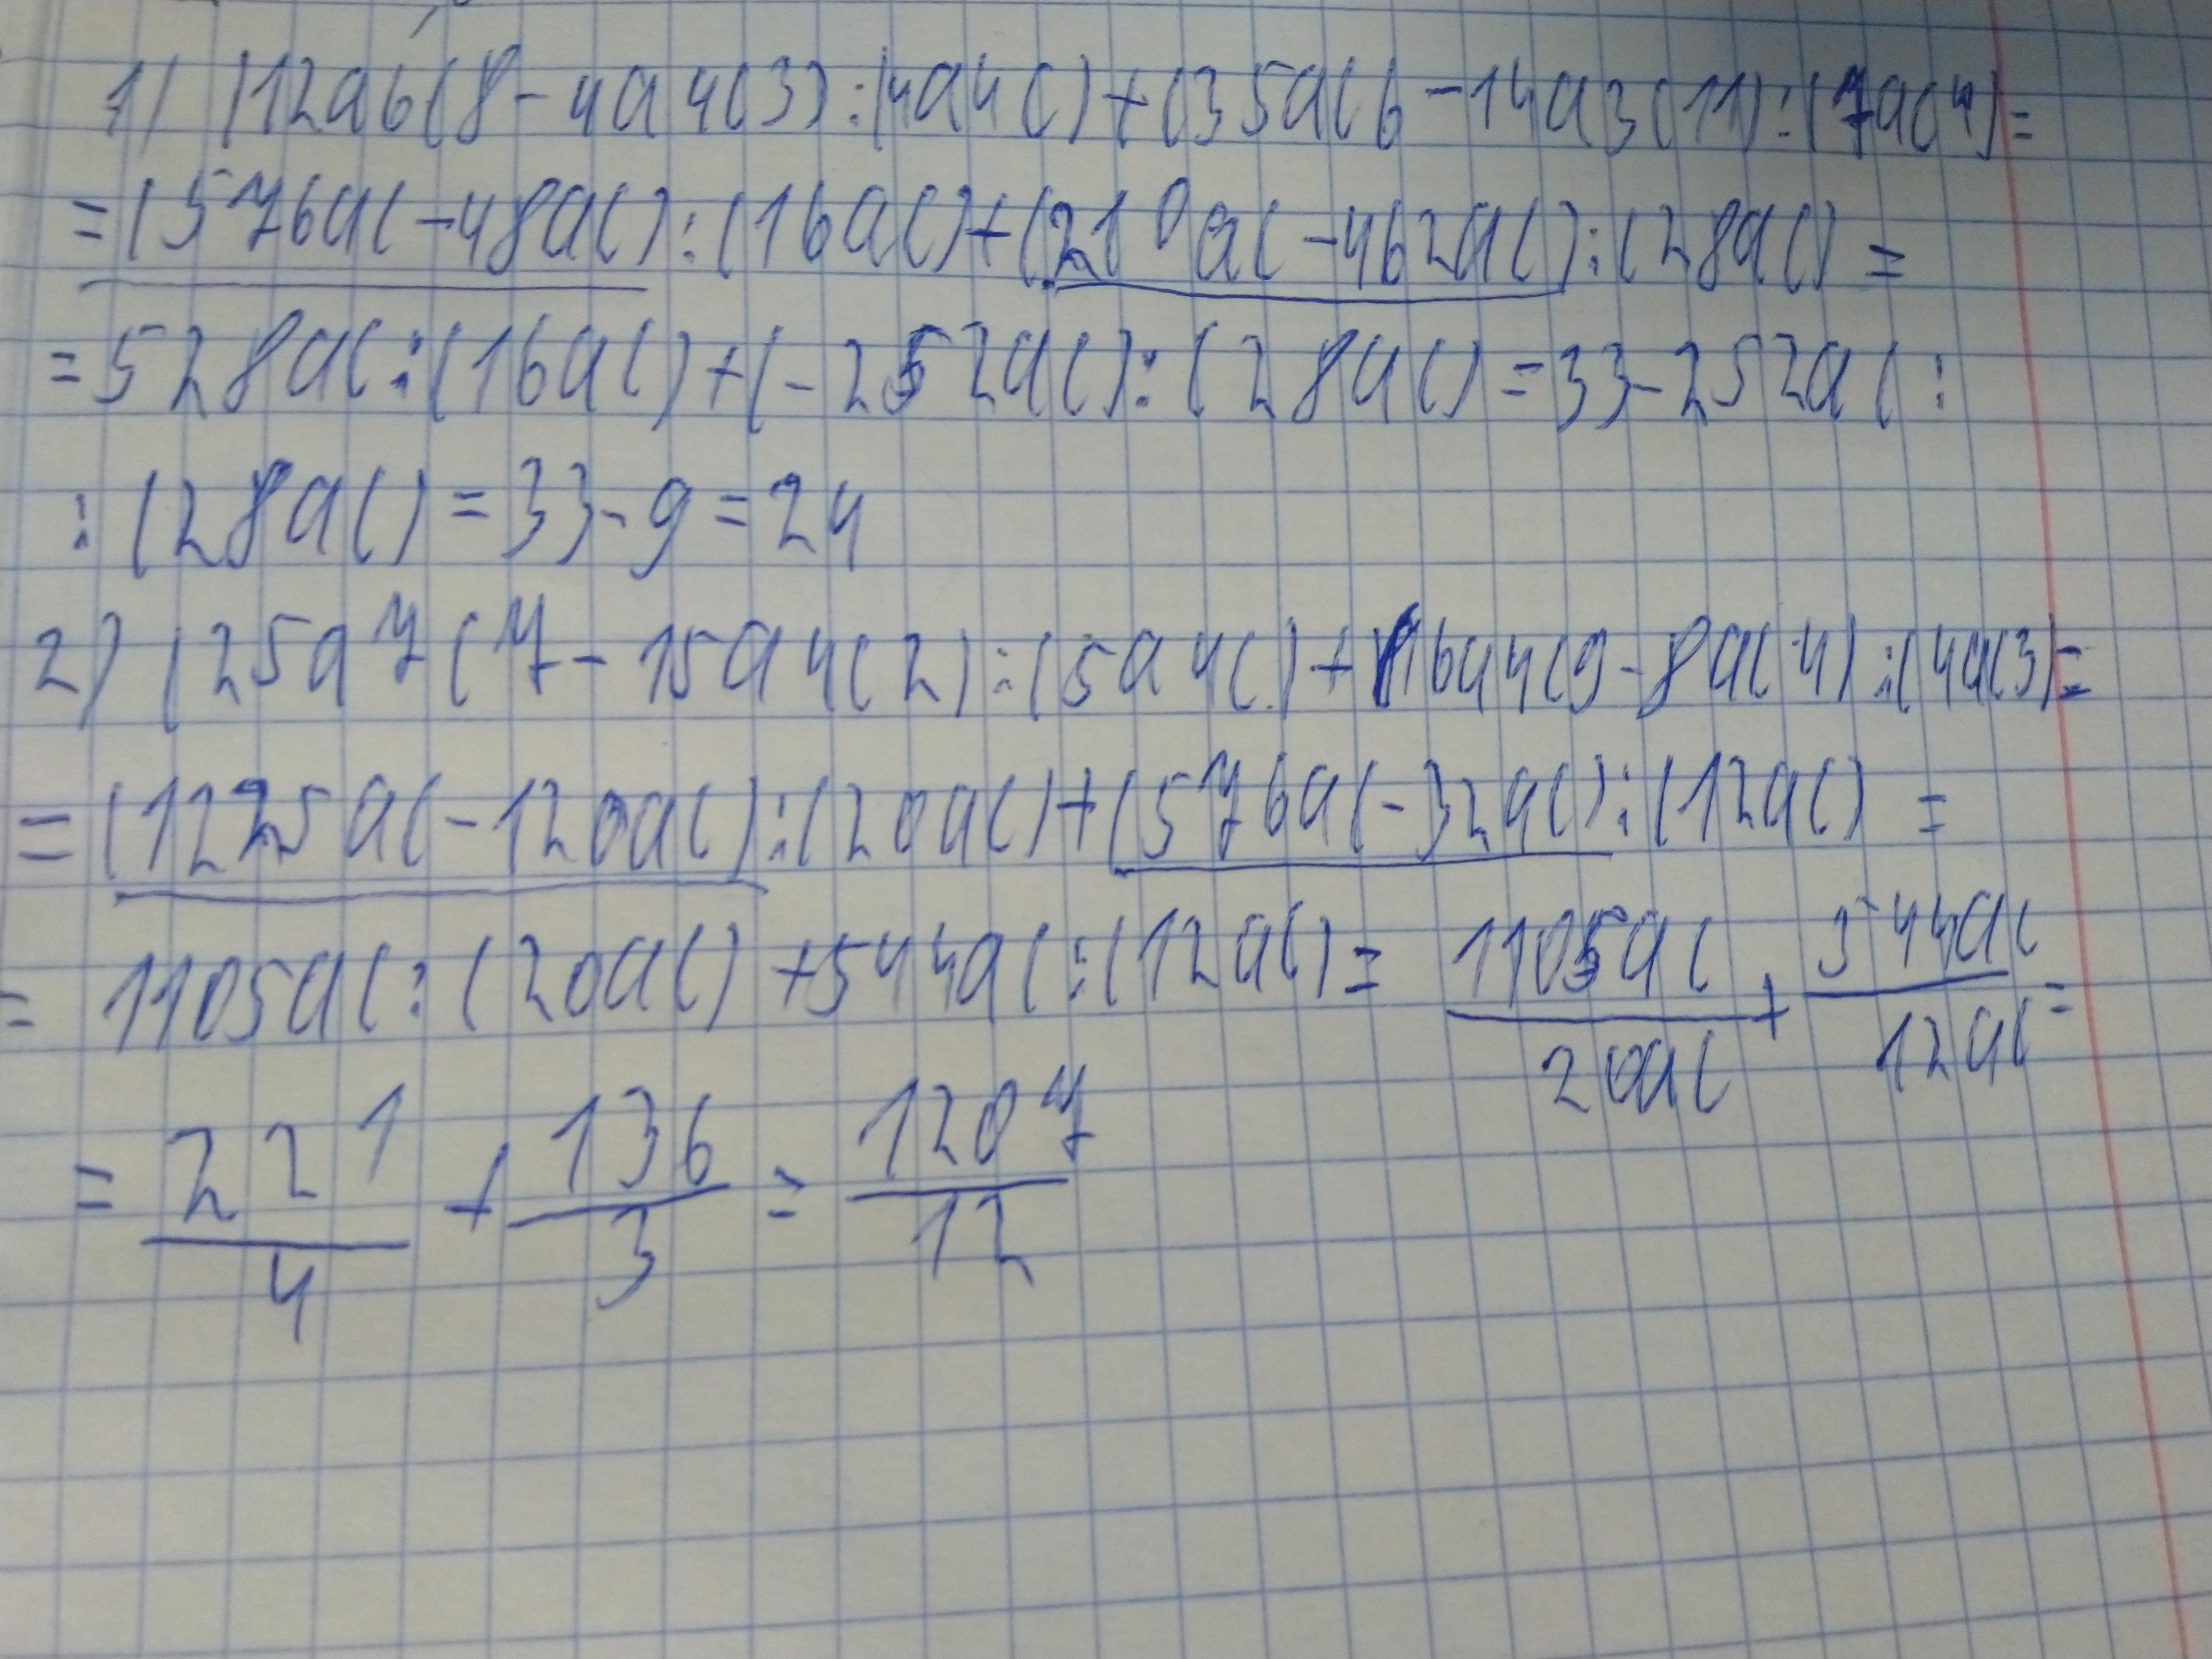 1) (12a6c8-4a4c3):(4a4c)+(35ac6-14a3c11):(7ac4)=
=(576ac-48ac):(16ac)+(210ac-462ac):(28ac)=
=528ac:(16ac)+(-252ac):(28ac)=33-252ac:
:(28ac)=33-9=24
2) (25a7c7-15a4c2):(5a4c)+(16a4c9-8ac4):(4ac3)=
=(1225ac-120ac):(20ac)+(576ac-32ac):(12ac)=
=1105ac:(20ac)+544ac:(12ac)=1105ac/20ac+544ac/12ac=
=221/4+136/3=1207/12